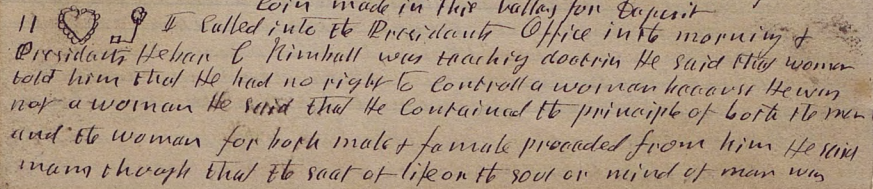 Coin made in this valley for Deposit
11 I Called into the Presidents Office in the morning &
Presidents Hebar C Kimball was teaching doctrin He said that woman
told him that He had no right to Controll a woman because He was
not a woman He said that He Contained the principle of both the man
and the woman for both male & famale proceeded from him He said
mans though that the seat of life or the soul or mind of man was